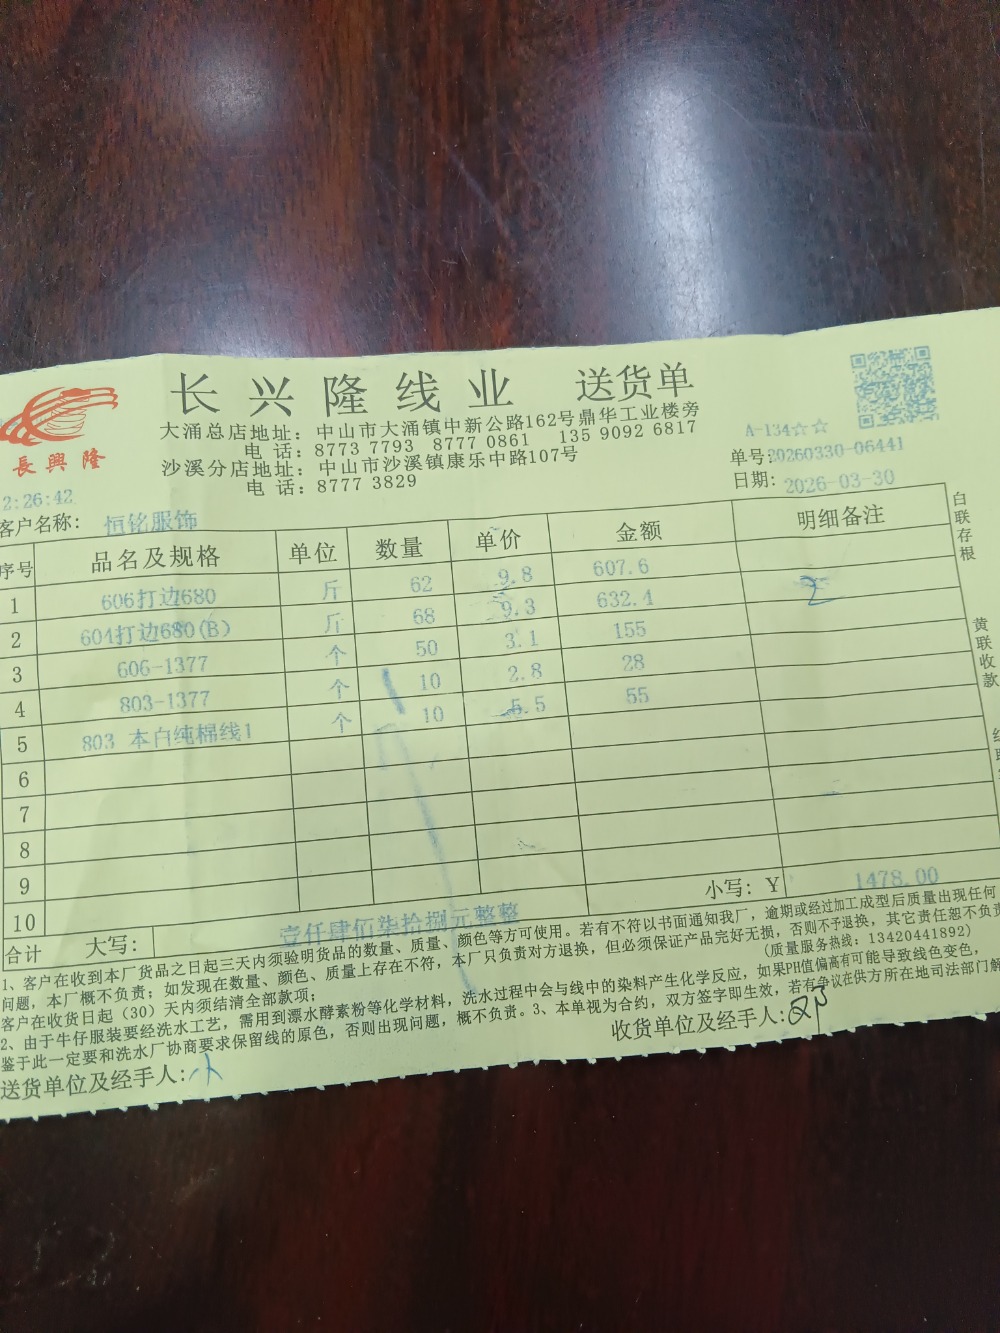 長興隆
长兴隆线业 送货单
大涌总店地址：中山市大涌镇中新公路162号鼎华工业楼旁
电 话：8773 7793 8777 0861 135 9092 6817
沙溪分店地址：中山市沙溪镇康乐中路107号
电 话：8777 3829
A-134☆☆
单号:20260330-06441
日期: 2026-03-30
2:26:42
客户名称: 恒铭服饰
序号 品名及规格 单位 数量 单价 金额 明细备注
1 606打边680 斤 62 9.8 607.6
2 604打边680(B) 斤 68 9.3 632.4
3 606-1377 个 50 3.1 155
4 803-1377 个 10 2.8 28
5 803 本白纯棉线1 个 10 5.5 55
6
7
8
9
10
小写：Y 1478.00
合计 大写: 壹仟肆佰柒拾捌元整整
1、客户在收到本厂货品之日起三天内须验明货品的数量、质量、颜色等方可使用。若有不符以书面通知我厂，逾期或经过加工成型后质量出现任何
问题，本厂概不负责；如发现在数量、颜色、质量上存在不符，本厂只负责对方退换，但必须保证产品完好无损，否则不予退换，其它责任恕不负责
客户在收货日起（30）天内须结清全部款项；
(质量服务热线：13420441892)
2、由于牛仔服装要经洗水工艺，需用到漂水酵素粉等化学材料，洗水过程中会与线中的染料产生化学反应，如果PH值偏高有可能导致线色变色，
鉴于此一定要和洗水厂协商要求保留线的原色，否则出现问题，概不负责。3、本单视为合约，双方签字即生效，若有争议在供方所在地司法部门解
送货单位及经手人:
收货单位及经手人:
白联存根
黄联收款